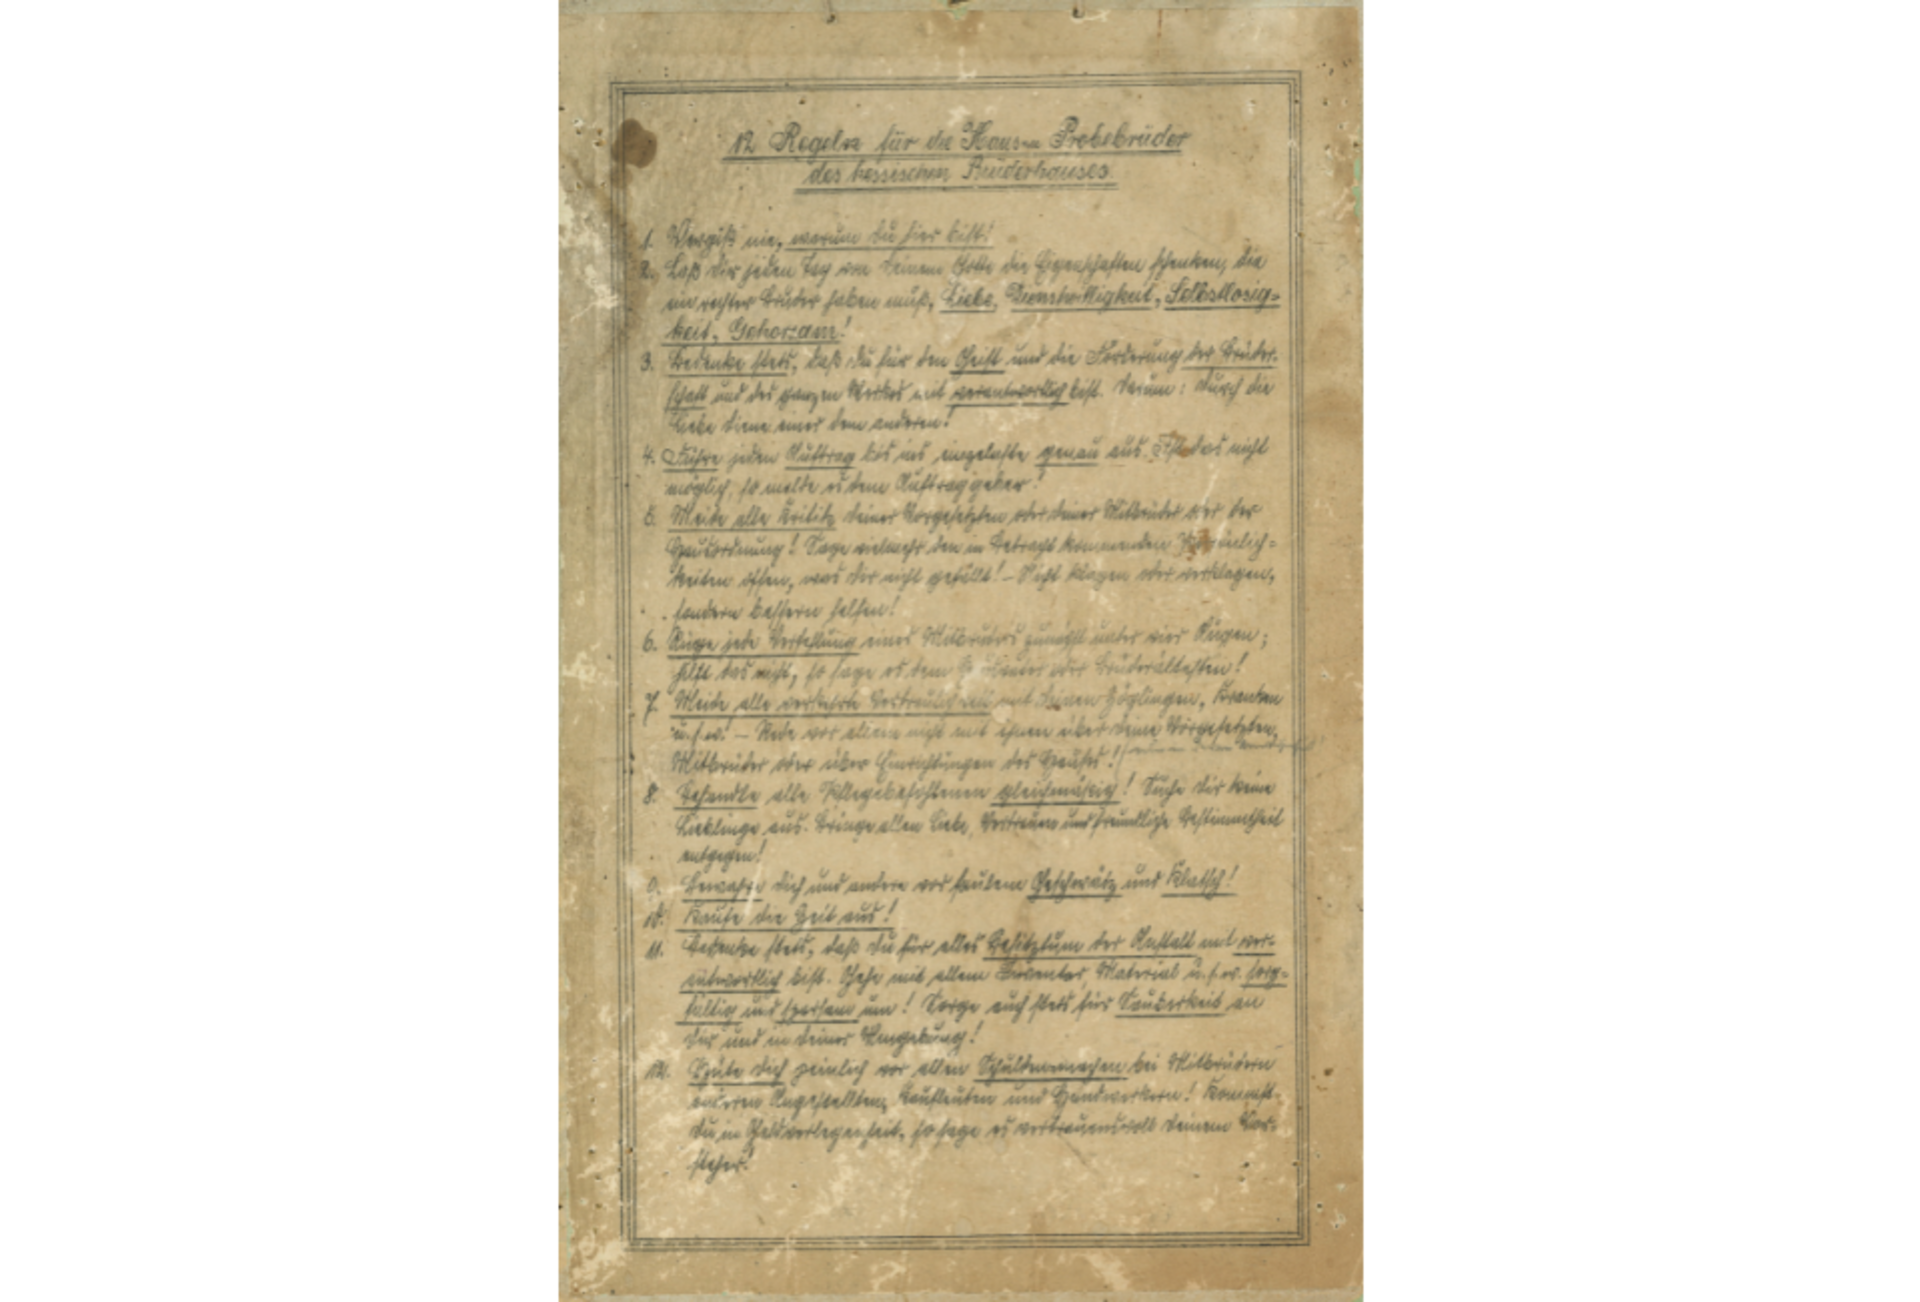 12 Regeln für die Haus- u. Probebrüder
des hessischen Brüderhauses.
1. Vergiß nie, warum du hier bist!
2. Laß dir jeden Tag von deinem Gotte die Eigenschaften schenken, die
ein rechter Bruder haben muß, Liebe, Dienstwilligkeit, Selbstlosig-
keit, Gehorsam!
3. Bedenke stets, daß du für den Geist und die Förderung der Brüder-
schaft und des ganzen Werkes mit verantwortlich bist. Darum: Durch die
Liebe diene einer dem anderen!
4. Führe jeden Auftrag bis ins einzelnste genau aus. Ist das nicht
möglich, so melde es dem Auftraggeber!
5. Meide alle Kritik deiner Vorgesetzten oder deiner Mitbrüder oder der
Hausordnung! Sage vielmehr den in Betracht kommenden Persönlich-
keiten offen, was dir nicht gefällt! – Nicht klagen oder verklagen,
sondern bessern helfen!
6. Rüge jede Verfehlung eines Mitbruders zunächst unter vier Augen;
hilft das nicht, so sage es dem oder Brüderältesten!
7. Meide alle verkehrte Vertraulichkeit mit deinen Zöglingen, Kranken
u.s.w.! – Rede vor allem nicht mit ihnen über deine Vorgesetzten,
Mitbrüder oder über Einrichtungen des Hauses!
8. Behandle alle Pflegebefohlenen gleichmäßig! Suche dir keine
Lieblinge aus. Bringe allen Liebe, Vertrauen und freundliche Bestimmtheit
entgegen!
9. Bewahre dich und andere vor faulem Geschwätz und Klatsch!
10. Kaufe die Zeit aus!
11. Bedenke stets, daß du für alles Besitztum der Anstalt mit ver-
antwortlich bist. Gehe mit allem Inventar, Material u.s.w. sorg-
fältig und sparsam um! Sorge auch stets für Sauberkeit an
dir und in deiner Umgebung!
12. Hüte dich peinlich vor allen Schuldenmachen bei Mitbrüdern
anderen Angestellten, Kaufleuten und Handwerkern! Kommst
du in Geldverlegenheit, so sage es vertrauensvoll deinem Vor-
steher!